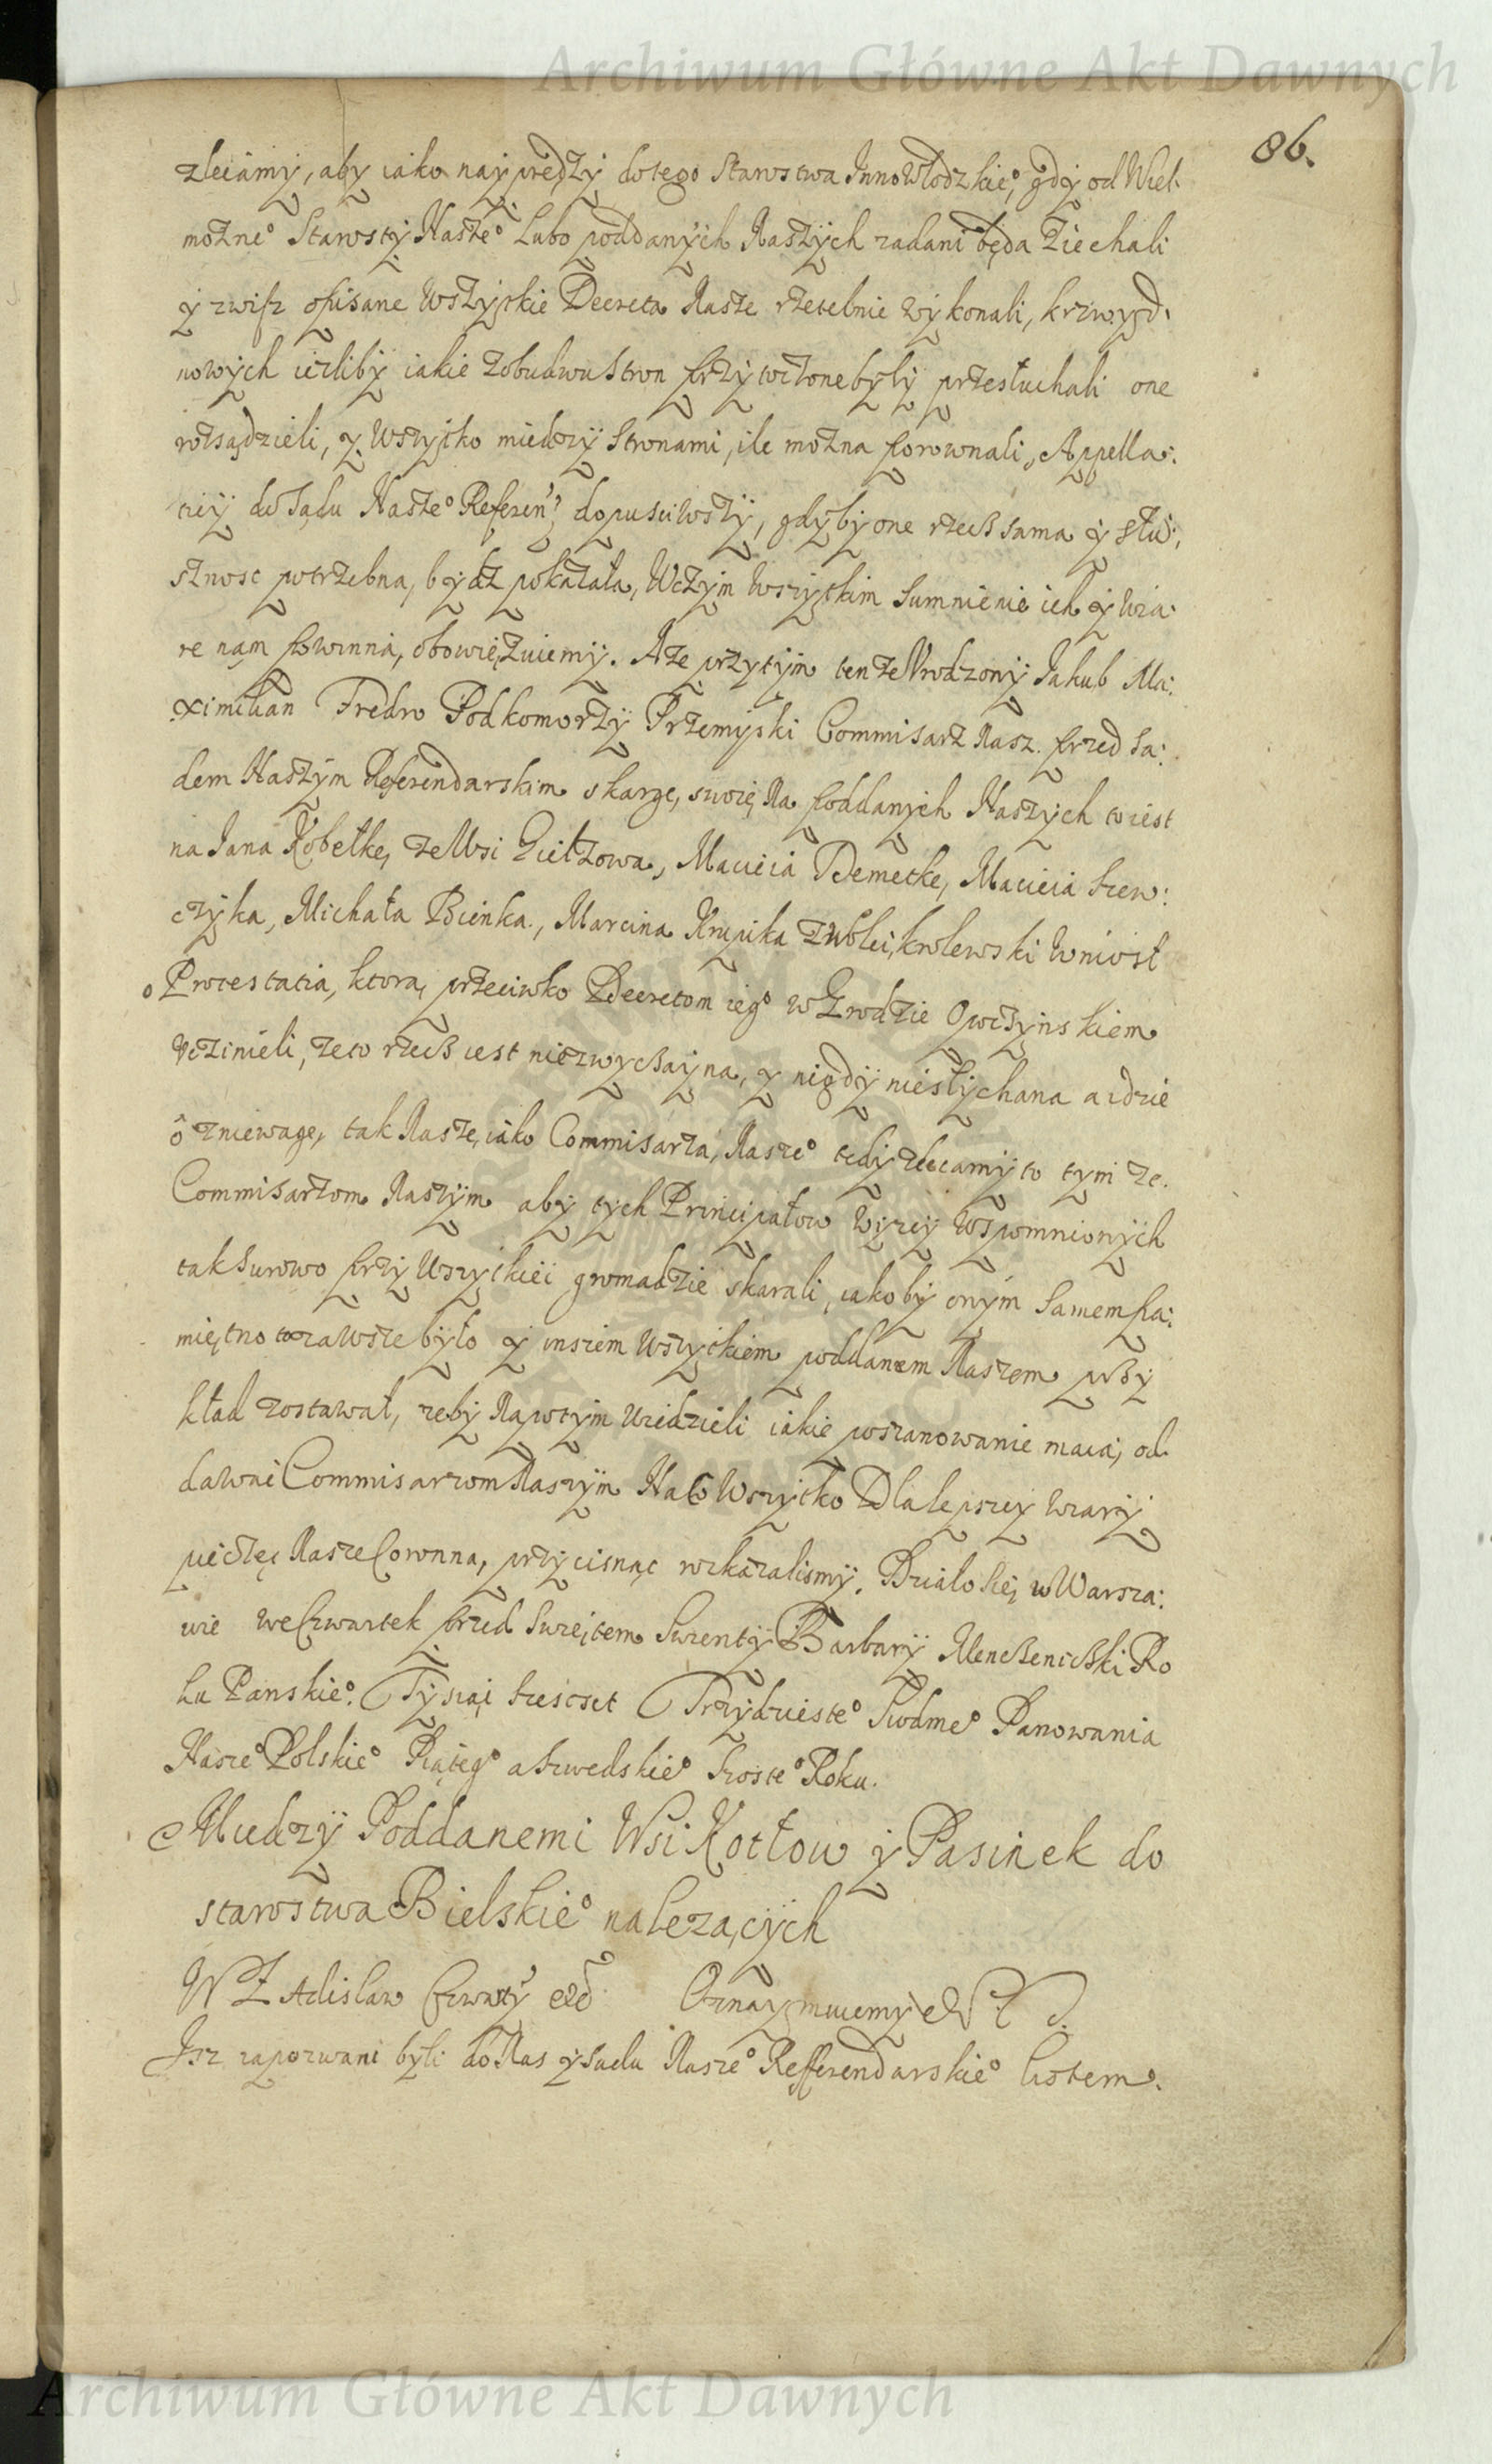 Archiwum Główne Akt Dawnych
86.
zleciamy, aby iako nayprędzy dotego Starostwa Innowłodzkieº, gdy od Wiel.
możneº Starosty Naszeº Lubo poddanych Naszych zadani będa Ziechali
y zwisz opisane Wszyskie Decreta Nasze rzetelnie wykonali, krzwyd.
nowych ieżliby iakie zobudwu Stron przytoczone były przesłuchali one
rozsądzieli, y Wszysko miedzy Stronami, ile można porownali, Appella:
ciey do Sądu Naszeº Referen, dopusciwszy, gdyby one rzecz sama y słu:
sznosc potrzebna, bydź pokazała, Wczym wszyskim Sumnienie ich y wia:
re nam powinna, obowięzuiemy. Aże przytym tenże Vrodzony Jakub Ma:
ximilian Fredro Podkomorzy Przemyski Commisarz Nasz. przed Są:
dem Naszym Referendarskim skargę, swoię Na poddanych Naszych to iest
na Iana Kobełkę, ze Wsi Giełzowa, Macieia Demetkę, Macieia Szew:
czyka, Michała Bienka., Marcina Krupika z Woley, krolewski Wniosł
o Protestatia, ktorą, przeciwko Decretom iegº w Grodzie Opoczynskiem
Vczinieli, żeto rzecz iest niezwyczayna, y nigdy niesłychana a idzie
o zniewagę, tak Naszę, iako Commisarza, Naszeº tedy zlecamy to tym że.
Commisarzom Naszym aby tych Principałow wyzey Wspomnionych
tak Surowo przy Wszyskiei gromadzie skarali, iakoby onym Samem pa:
miętno zawsze było y inszem wszyskiem poddanem Naszem przy
kład zostawał, zeby Napotym Wiedzieli iakie poszanowanie maią, od
dawai Commisarzom Naszym Na co Wszysko Dla lepszey wiary
pieczęc Nasze Coronna, przycisnąc rozkazalismy. Działo się, w Warsza:
wie We Czwartek przed Swiętem Swenty Barbary Menczeniczki Ro
ku Panskieº. Tysiąc szescset Trzydziesteº Siodmeº Panowania
Naszeº Polskieº Piątegº a Szwedskieº Szosteº Roku.
Miedzy Poddanemi Wsi Kotłow y Pasinek do
starostwa Bielskieº nalezących
WŁAdislaw Czwarty Oznaymuiemy
Isz zapozwani byli do Nas y Sadu Naszeº Refferendarskieº listem.
Archiwum Główne Akt Dawnych